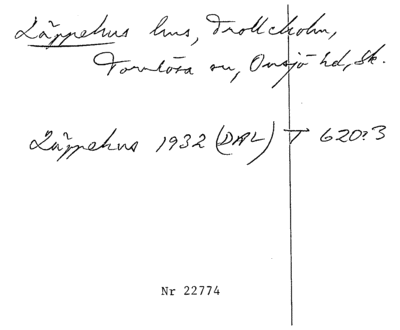 Läppehus hus, Trolleholm,
Torrlösa sn, Onsjö hd, Sk.
Läppehus 1932 (DAL) T 620:3
Nr 22774